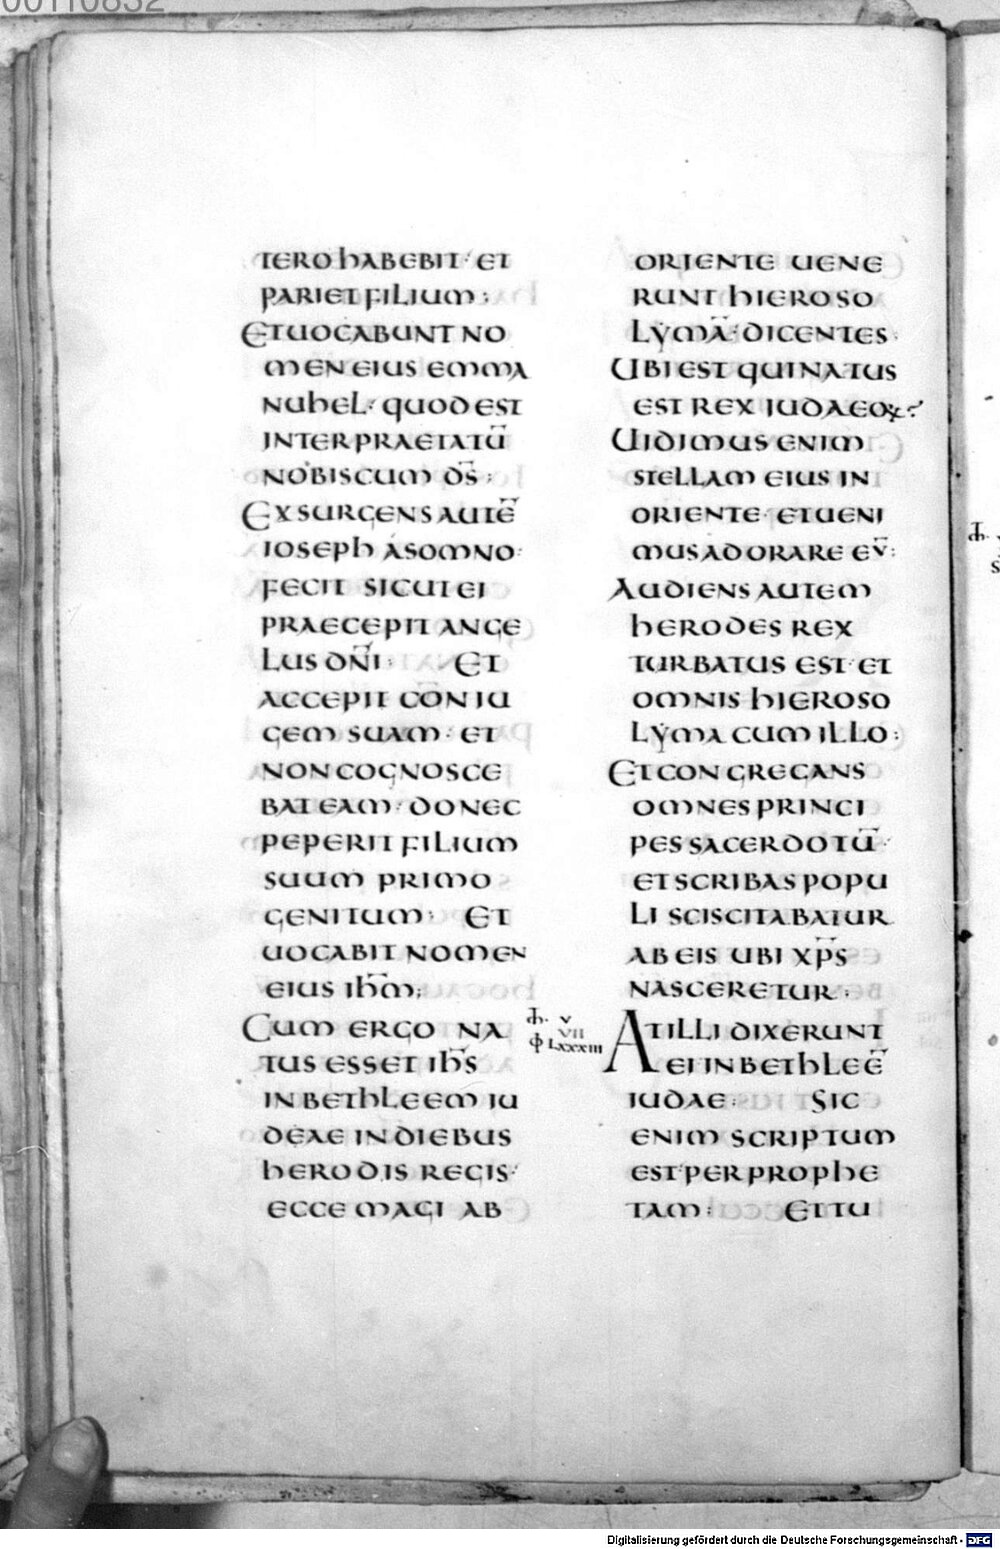 00110832
TERO hABEBIT· ET
PARIET FILIUM:
ET UOCABUNT NO
MEN EIUS EMMA
NUhEL· QUOD EST
INTERPRAETATŪ
NOBISCUM D̄S̄:
EXSURGENS AUTĒ
IOSEPh A SOMNO·
FECIT SICUT EI
PRAECEPIT ANGE
LUS D̄N̄I· ET
ACCEPIT CŌNIU
GEM SUAM· ET
NON COGNOSCE
BAT EAM· DONEC
PEPERIT FILIUM
SUUM PRIMO
GENITUM· ET
UOCABIT NOMEN
EIUS Ih̄M̄:
CUM ERGO NA
TUS ESSET Ih̄S̄
IN BEThLEEM IU
DEAE IN DIEBUS
hERODIS REGIS·
ECCE MAGI AB
V
VII
LXXXIII
ORIENTE UENE
RUNT hIEROSO
LYMĀ· DICENTES·
UBI EST QUI NATUS
EST REX IUDAEOꝜ?
UIDIMUS ENIM
STELLAM EIUS IN
ORIENTE· ET UENI
MUS ADORARE EV̄:
AUDIENS AUTEM
hERODES REX
TURBATUS EST· ET
OMNIS hIEROSO
LYMA CUM ILLO:
ET CONGREGANS
OMNES PRINCI
PES SACERDOTŪ·
ET SCRIBAS POPU
LI SCISCITABATUR
AB EIS UBI XP̄S̄
NASCERETUR·
AT ILLI DIXERUNT
EI IN BEThLEĒ
IUDAE· SIC
ENIM SCRIPTUM
EST PER PROPhE
TAM: ET TU
Digitalisierung gefördert durch die Deutsche Forschungsgemeinschaft - DFG